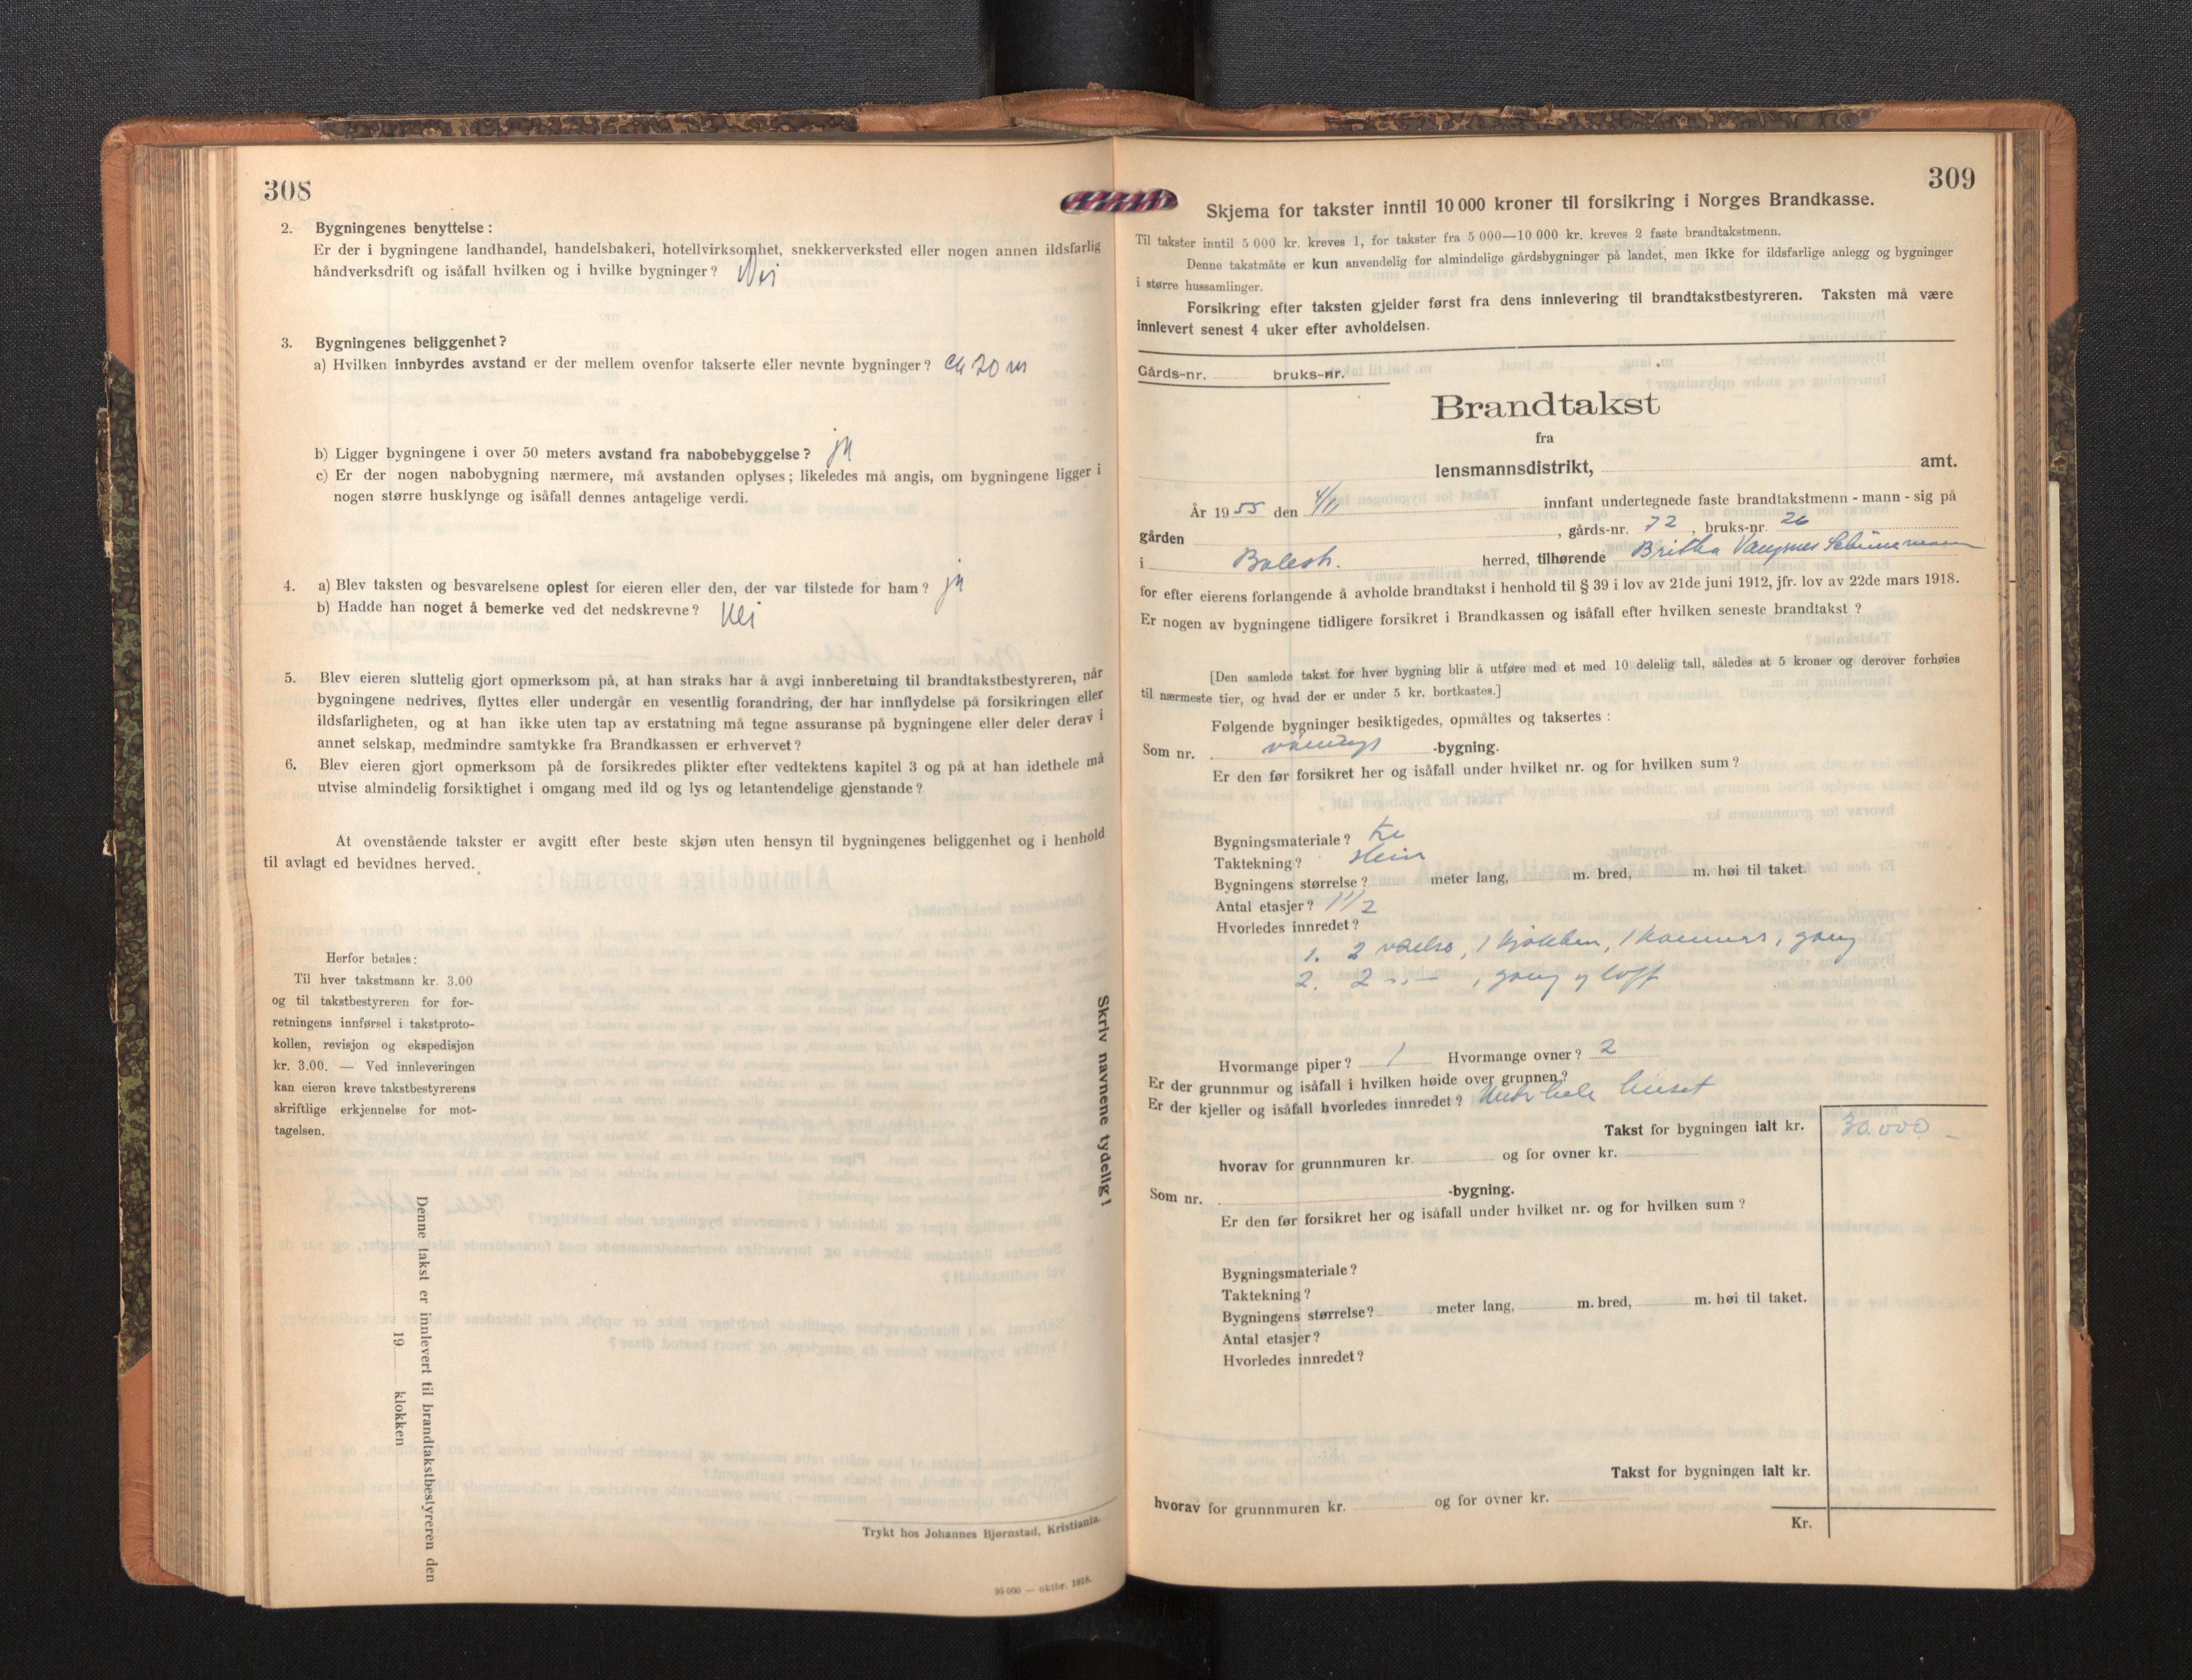 308
2. Bygningenes benyttelse:
Er der i bygningene landhandel, handelsbakeri, hotellvirksomhet, snekkerverksted eller nogen annen ildsfarlig
håndverksdrift og isåfall hvilken og i hvilke bygninger? Nei
3. Bygningenes beliggenhet?
a) Hvilken innbyrdes avstand er der mellem ovenfor takserte eller nevnte bygninger? ca 20 m
b) Ligger bygningene i over 50 meters avstand fra nabobebyggelse? ja
c) Er der nogen nabobygning nærmere, må avstanden oplyses; likeledes må angis, om bygningene ligger i
nogen større husklynge og isåfall dennes antagelige verdi.
4. a) Blev taksten og besvarelsene oplest for eieren eller den, der var tilstede for ham? ja
b) Hadde han noget å bemerke ved det nedskrevne? Nei
5. Blev eieren sluttelig gjort opmerksom på, at han straks har å avgi innberetning til brandtakstbestyreren, når
bygningene nedrives, flyttes eller undergår en vesentlig forandring, der har innflydelse på forsikringen eller
ildsfarligheten, og at han ikke uten tap av erstatning må tegne assuranse på bygningene eller deler derav i
annet selskap, medmindre samtykke fra Brandkassen er erhvervet?
6. Blev eieren gjort opmerksom på de forsikredes plikter efter vedtektens kapitel 3 og på at han idethele må
utvise almindelig forsiktighet i omgang med ild og lys og letantendelige gjenstande?
At ovenstående takster er avgitt efter beste skjøn uten hensyn til bygningenes beliggenhet og i henhold
til avlagt ed bevidnes herved.
Herfor betales:
Til hver takstmann kr. 3.00
og til takstbestyreren for for-
retningens innførsel i takstproto-
kollen, revisjon og ekspedisjon
kr. 3.00. — Ved innleveringen
kan eieren kreve takstbestyrerens
skriftlige erkjennelse for mot-
tagelsen.
Skriv navnene tydelig!
Denne takst er innlevert til brandtakstbestyreren den
19 klokken
Trykt hos Johannes Bjørnstad, Kristiania.
— oktbr. 1918.
309
Skjema for takster inntil 10 000 kroner til forsikring i Norges Brandkasse.
Til takster inntil 5 000 kr. kreves 1, for takster fra 5 000—10 000 kr. kreves 2 faste brandtakstmenn.
Denne takstmåte er kun anvendelig for almindelige gårdsbygninger på landet, men ikke for ildsfarlige anlegg og bygninger
i større hussamlinger.
Forsikring efter taksten gjelder først fra dens innlevering til brandtakstbestyreren. Taksten må være
innlevert senest 4 uker efter avholdelsen.
Gårds-nr. bruks-nr.
Brandtakst
fra
lensmannsdistrikt, amt.
År 1955 den 4/11 innfant undertegnede faste brandtakstmenn - mann - sig på
gården , gårds-nr. 72 , bruks-nr. 26
i Balestr. herred, tilhørende Britha Vangsnes
for efter eierens forlangende å avholde brandtakst i henhold til § 39 i lov av 21de juni 1912, jfr. lov av 22de mars 1918.
Er nogen av bygningene tidligere forsikret i Brandkassen og isåfall efter hvilken seneste brandtakst?
[Den samlede takst for hver bygning blir å utføre med et med 10 delelig tall, således at 5 kroner og derover forhøies
til nærmeste tier, og hvad der er under 5 kr. bortkastes.]
Følgende bygninger besiktigedes, opmåltes og taksertes:
Som nr. vånings -bygning.
Er den før forsikret her og isåfall under hvilket nr. og for hvilken sum?
Bygningsmateriale? tre
Taktekning? stein
Bygningens størrelse? meter lang, m. bred, m. høi til taket.
Antal etasjer? 1 1/2
Hvorledes innredet?
1. 2 værelse, 1 kjøkken, 1 kammers, gang
2. 2 -,,- , gang og loft
Hvormange piper? 1 Hvormange ovner? 2
Er der grunnmur og isåfall i hvilken høide over grunnen?
Er der kjeller og isåfall hvorledes innredet? Under hele huset
Takst for bygningen ialt kr. 30.000 -
hvorav for grunnmuren kr. og for ovner kr.
Som nr. -bygning.
Er den før forsikret her og isåfall under hvilket nr. og for hvilken sum?
Bygningsmateriale?
Taktekning?
Bygningens størrelse? meter lang, m. bred, m. høi til taket.
Antal etasjer?
Hvorledes innredet?
Takst for bygningen ialt kr.
hvorav for grunnmuren kr. og for ovner kr.
Kr.